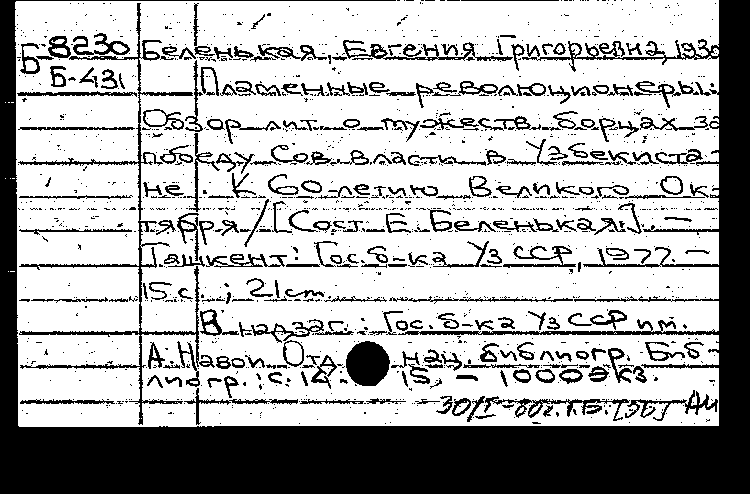 Б 8230 Беленькая, Евгения Григорьевна, 1930
Б-431 Пламенные революционеры:
Обзор лит. о мужеств. борцах за
победу Сов. власти в Узбекиста-
не. К 60-летию Великого Ок-
тября / [Сост. Е. Беленькая]. —
Ташкент: Гос. б-ка УзССР, 1977. —
15 с. ; 21 cm.
В надзаг.: Гос. б-ка УзССР им.
А. Навои. Отд. нац. библиогр. Биб-
лиогр.: с. 14. 15. — 1000 экз.
30/I-80г. Г.Б. [ЭБ] АИ